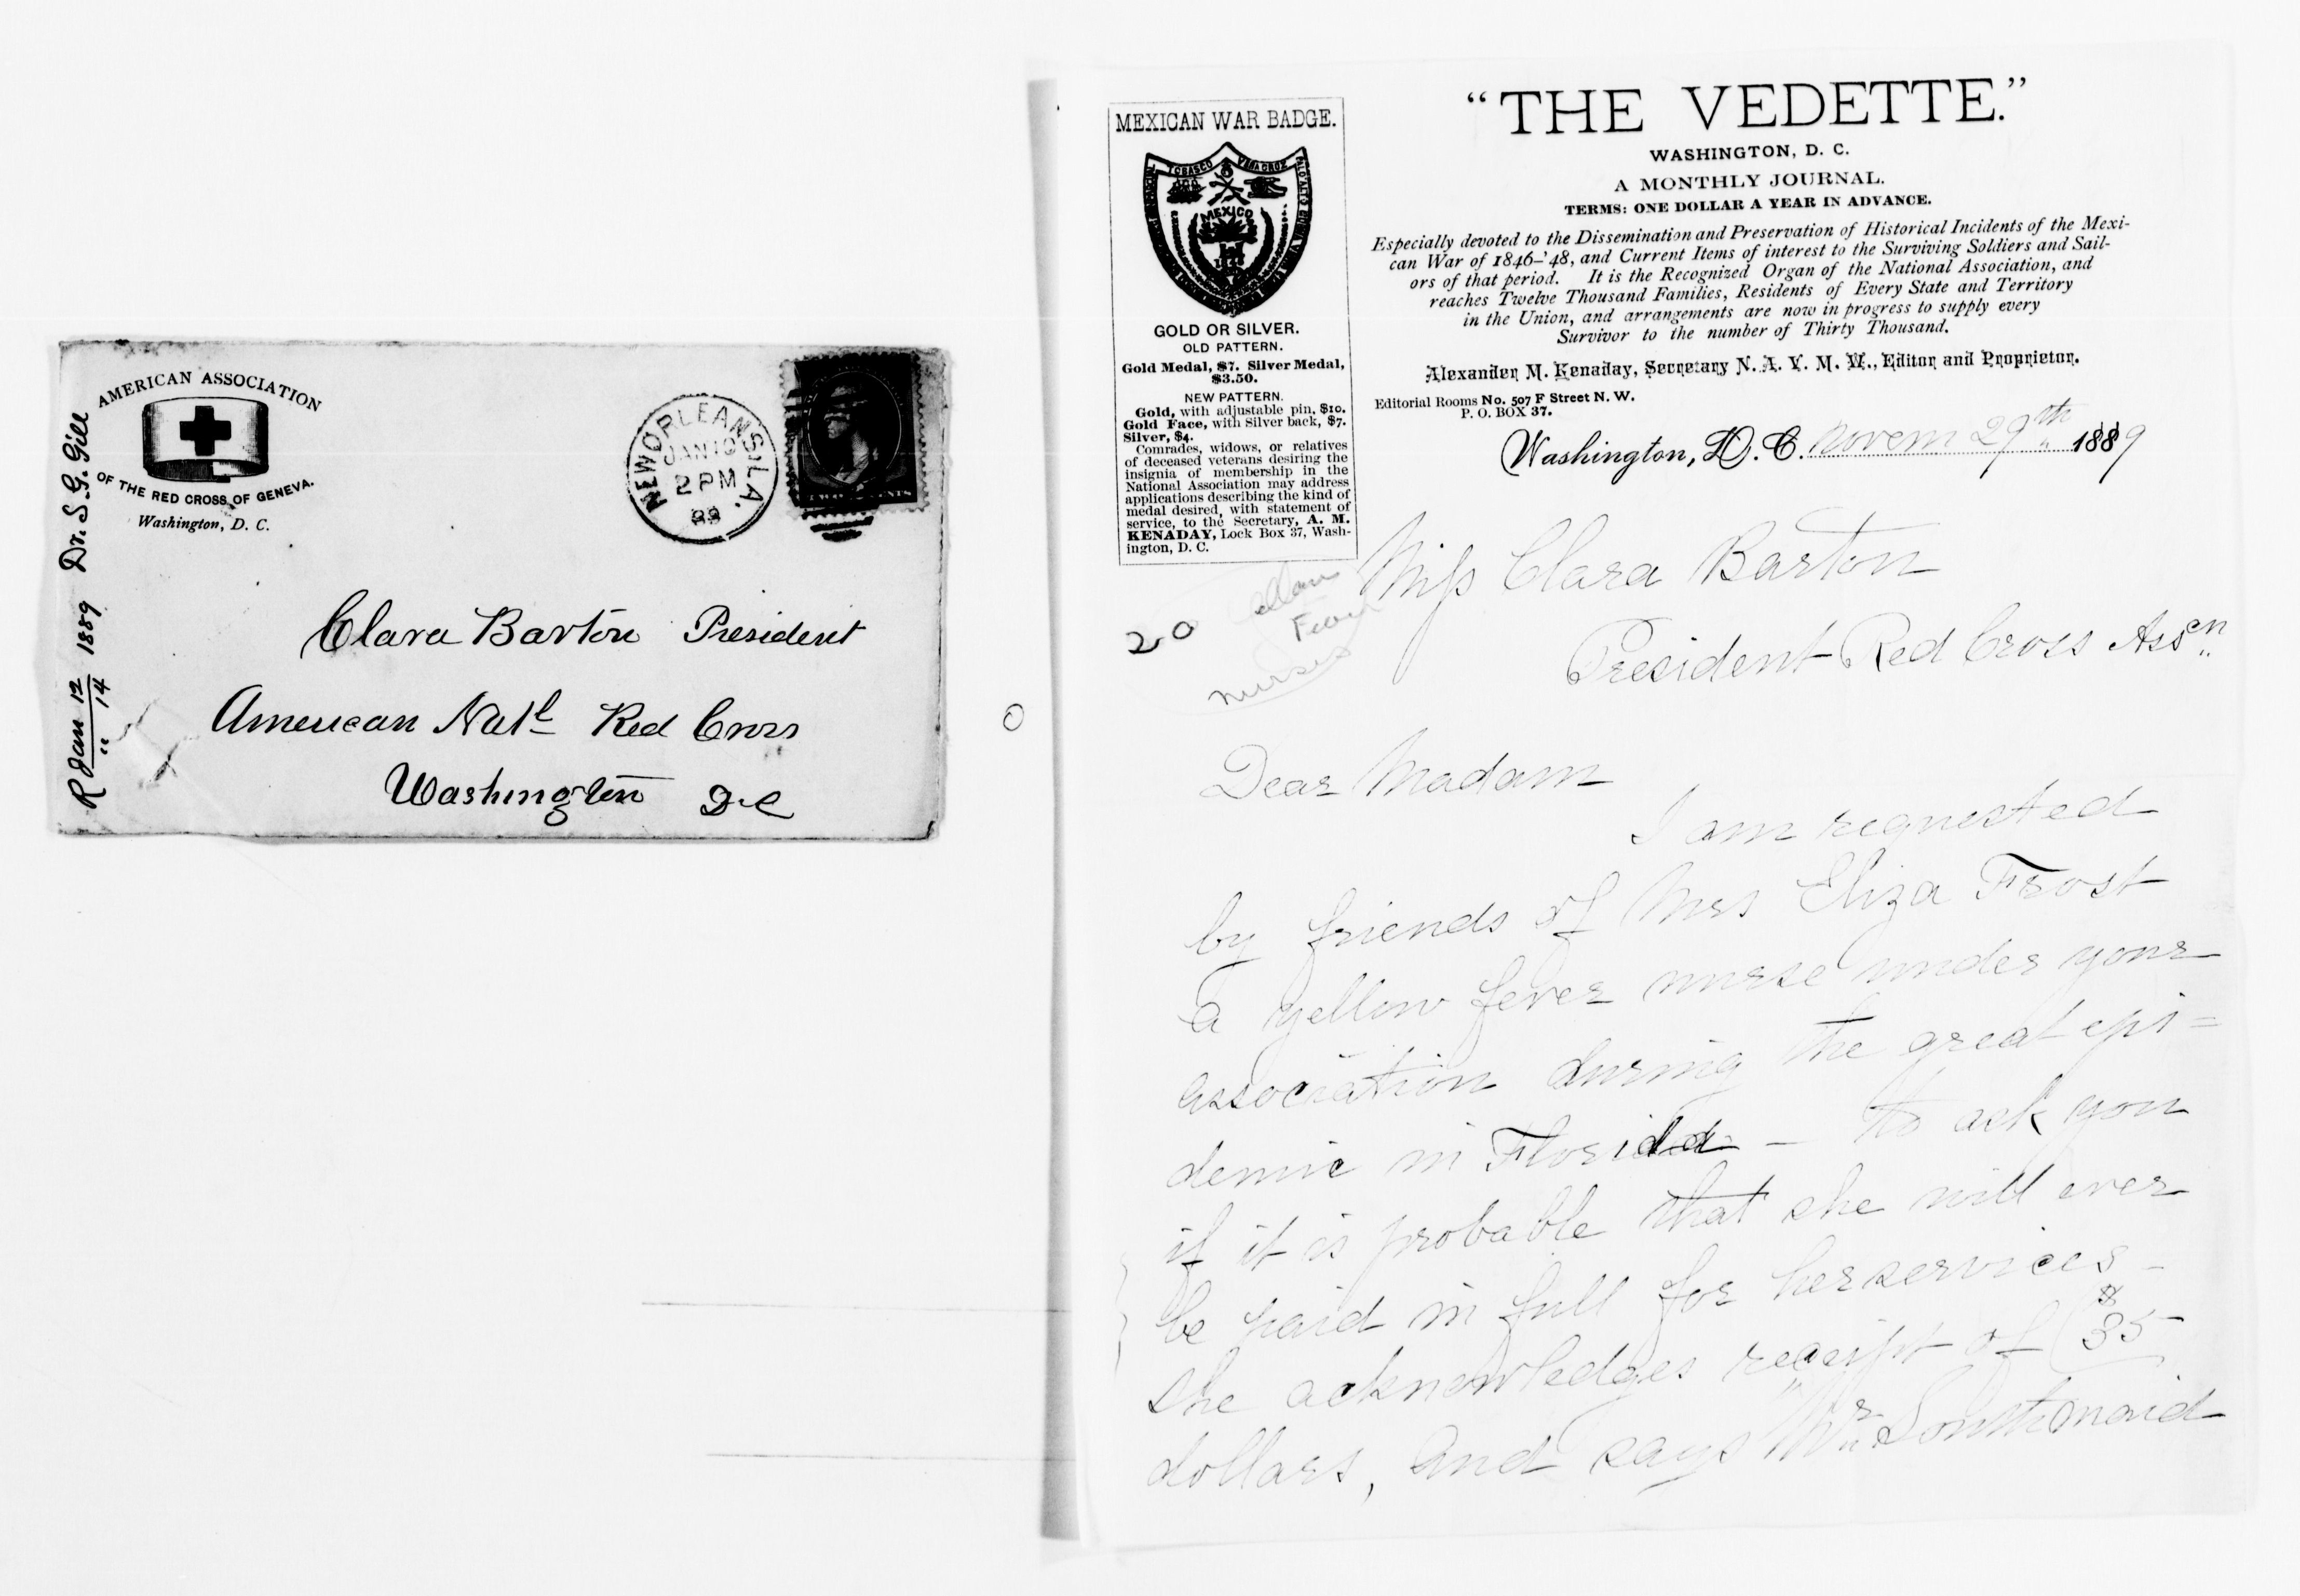 AMERICAN ASSOCIATION
OF THE RED CROSS OF GENEVA.
Washington, D. C.
R Jan 12 1889 Dr. S. G. Gill
" 14
NEW ORLEANS, LA.
JAN 10
2 PM
89
TWO CENTS
Clara Barton President
American Natl Red Cross
Washington D.C
MEXICAN WAR BADGE.
TOBASCO VERA CRUZ
MEXICO
GOLD OR SILVER.
OLD PATTERN.
Gold Medal, $7. Silver Medal,
$3.50.
NEW PATTERN.
Gold, with adjustable pin, $10.
Gold Face, with Silver back, $7.
Silver, $4.
Comrades, widows, or relatives
of deceased veterans desiring the
insignia of membership in the
National Association may address
applications describing the kind of
medal desired, with statement of
service, to the Secretary, A. M.
KENADAY, Lock Box 37, Wash-
ington, D. C.
"THE VEDETTE."
WASHINGTON, D. C.
A MONTHLY JOURNAL.
TERMS: ONE DOLLAR A YEAR IN ADVANCE.
Especially devoted to the Dissemination and Preservation of Historical Incidents of the Mexi-
can War of 1846-'48, and Current Items of interest to the Surviving Soldiers and Sail-
ors of that period. It is the Recognized Organ of the National Association, and
reaches Twelve Thousand Families, Residents of Every State and Territory
in the Union, and arrangements are now in progress to supply every
Survivor to the number of Thirty Thousand.
Alexander M. Kenaday, Secretary N. A. V. M. W., Editor and Proprietor.
Editorial Rooms No. 507 F Street N. W.
P. O. BOX 37.
Washington, D. C. Novem 29th 1889
20
nurses
Miss Clara Barton
President Red Cross Assn
Dear Madam
I am requested
by friends of Mrs Eliza Frost
a yellow fever nurse under your
association during the great epi=
demic in Florida — to ask you
if it is probable that she will ever
be paid in full for her services -
she acknowledges receipt of $35
dollars, and says "Mr Southmaid